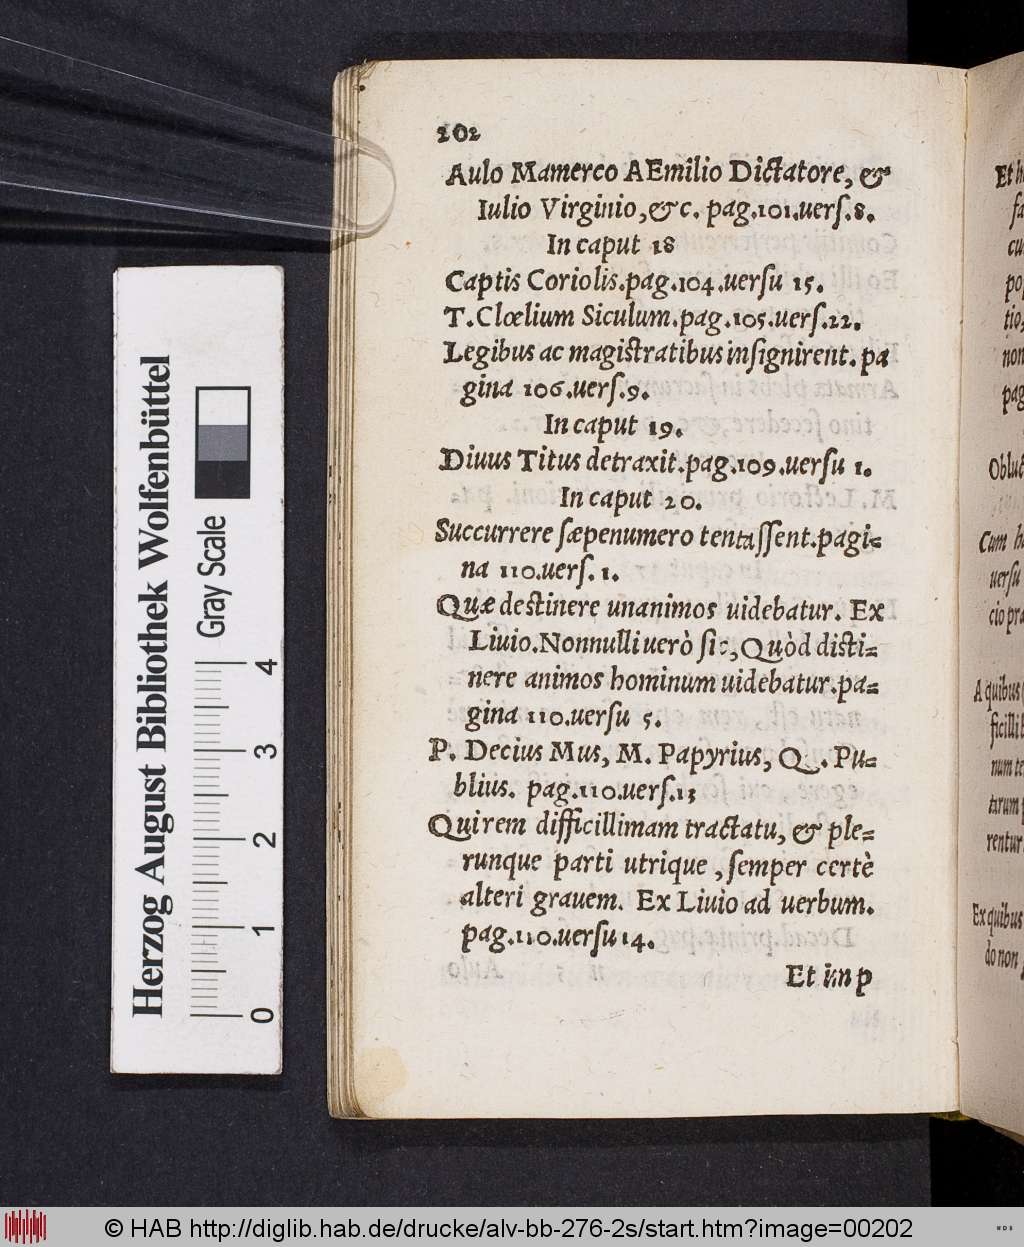 202
Aulo Mamerco AEmilio Dictatore, &
Iulio Virginio, &c. pag.101.uerſ.8.
In caput 18
Captis Coriolis.pag.104.uerſu 15.
T.Clœlium Siculum.pag.105.uerſ.22.
Legibus ac magiſtratibus inſignirent. pa
gina 106.uerſ.9.
In caput 19.
Diuus Titus detraxit.pag.109.uerſu 1.
In caput 20.
Succurrere ſæpenumero tentaſſent.pagi-
na 110.uerſ.1.
Quæ deſtinere unanimos uidebatur. Ex
Liuio.Nonnulli uerò ſic, Quòd diſti-
nere animos hominum uidebatur.pa-
gina 110.uerſu 5.
P. Decius Mus, M. Papyrius, Q. Pu-
blius. pag.110.uerſ.13
Qui rem difficillimam tractatu, & ple-
runque parti utrique, ſemper certè
alteri grauem. Ex Liuio ad uerbum.
pag.110.uerſu 14.
Et imp
Et
cu
non
pag
Cum
uerſu
A quibus
rentur
Ex quibus
do non
Herzog August Bibliothek Wolfenbüttel
Gray Scale
0 1 2 3 4
© HAB http://diglib.hab.de/drucke/alv-bb-276-2s/start.htm?image=00202